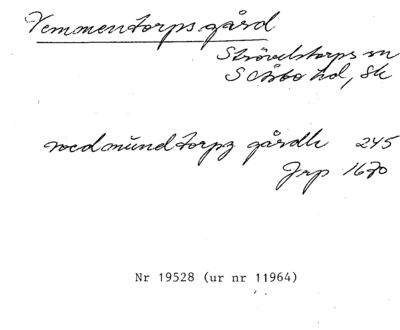 Vemmentorps gård
Strövelstorps sn
S Åsbo hd, Sk
wedmŭndtorpz gårdh 245
Jrp 1670
Nr 19528 (ur nr 11964)